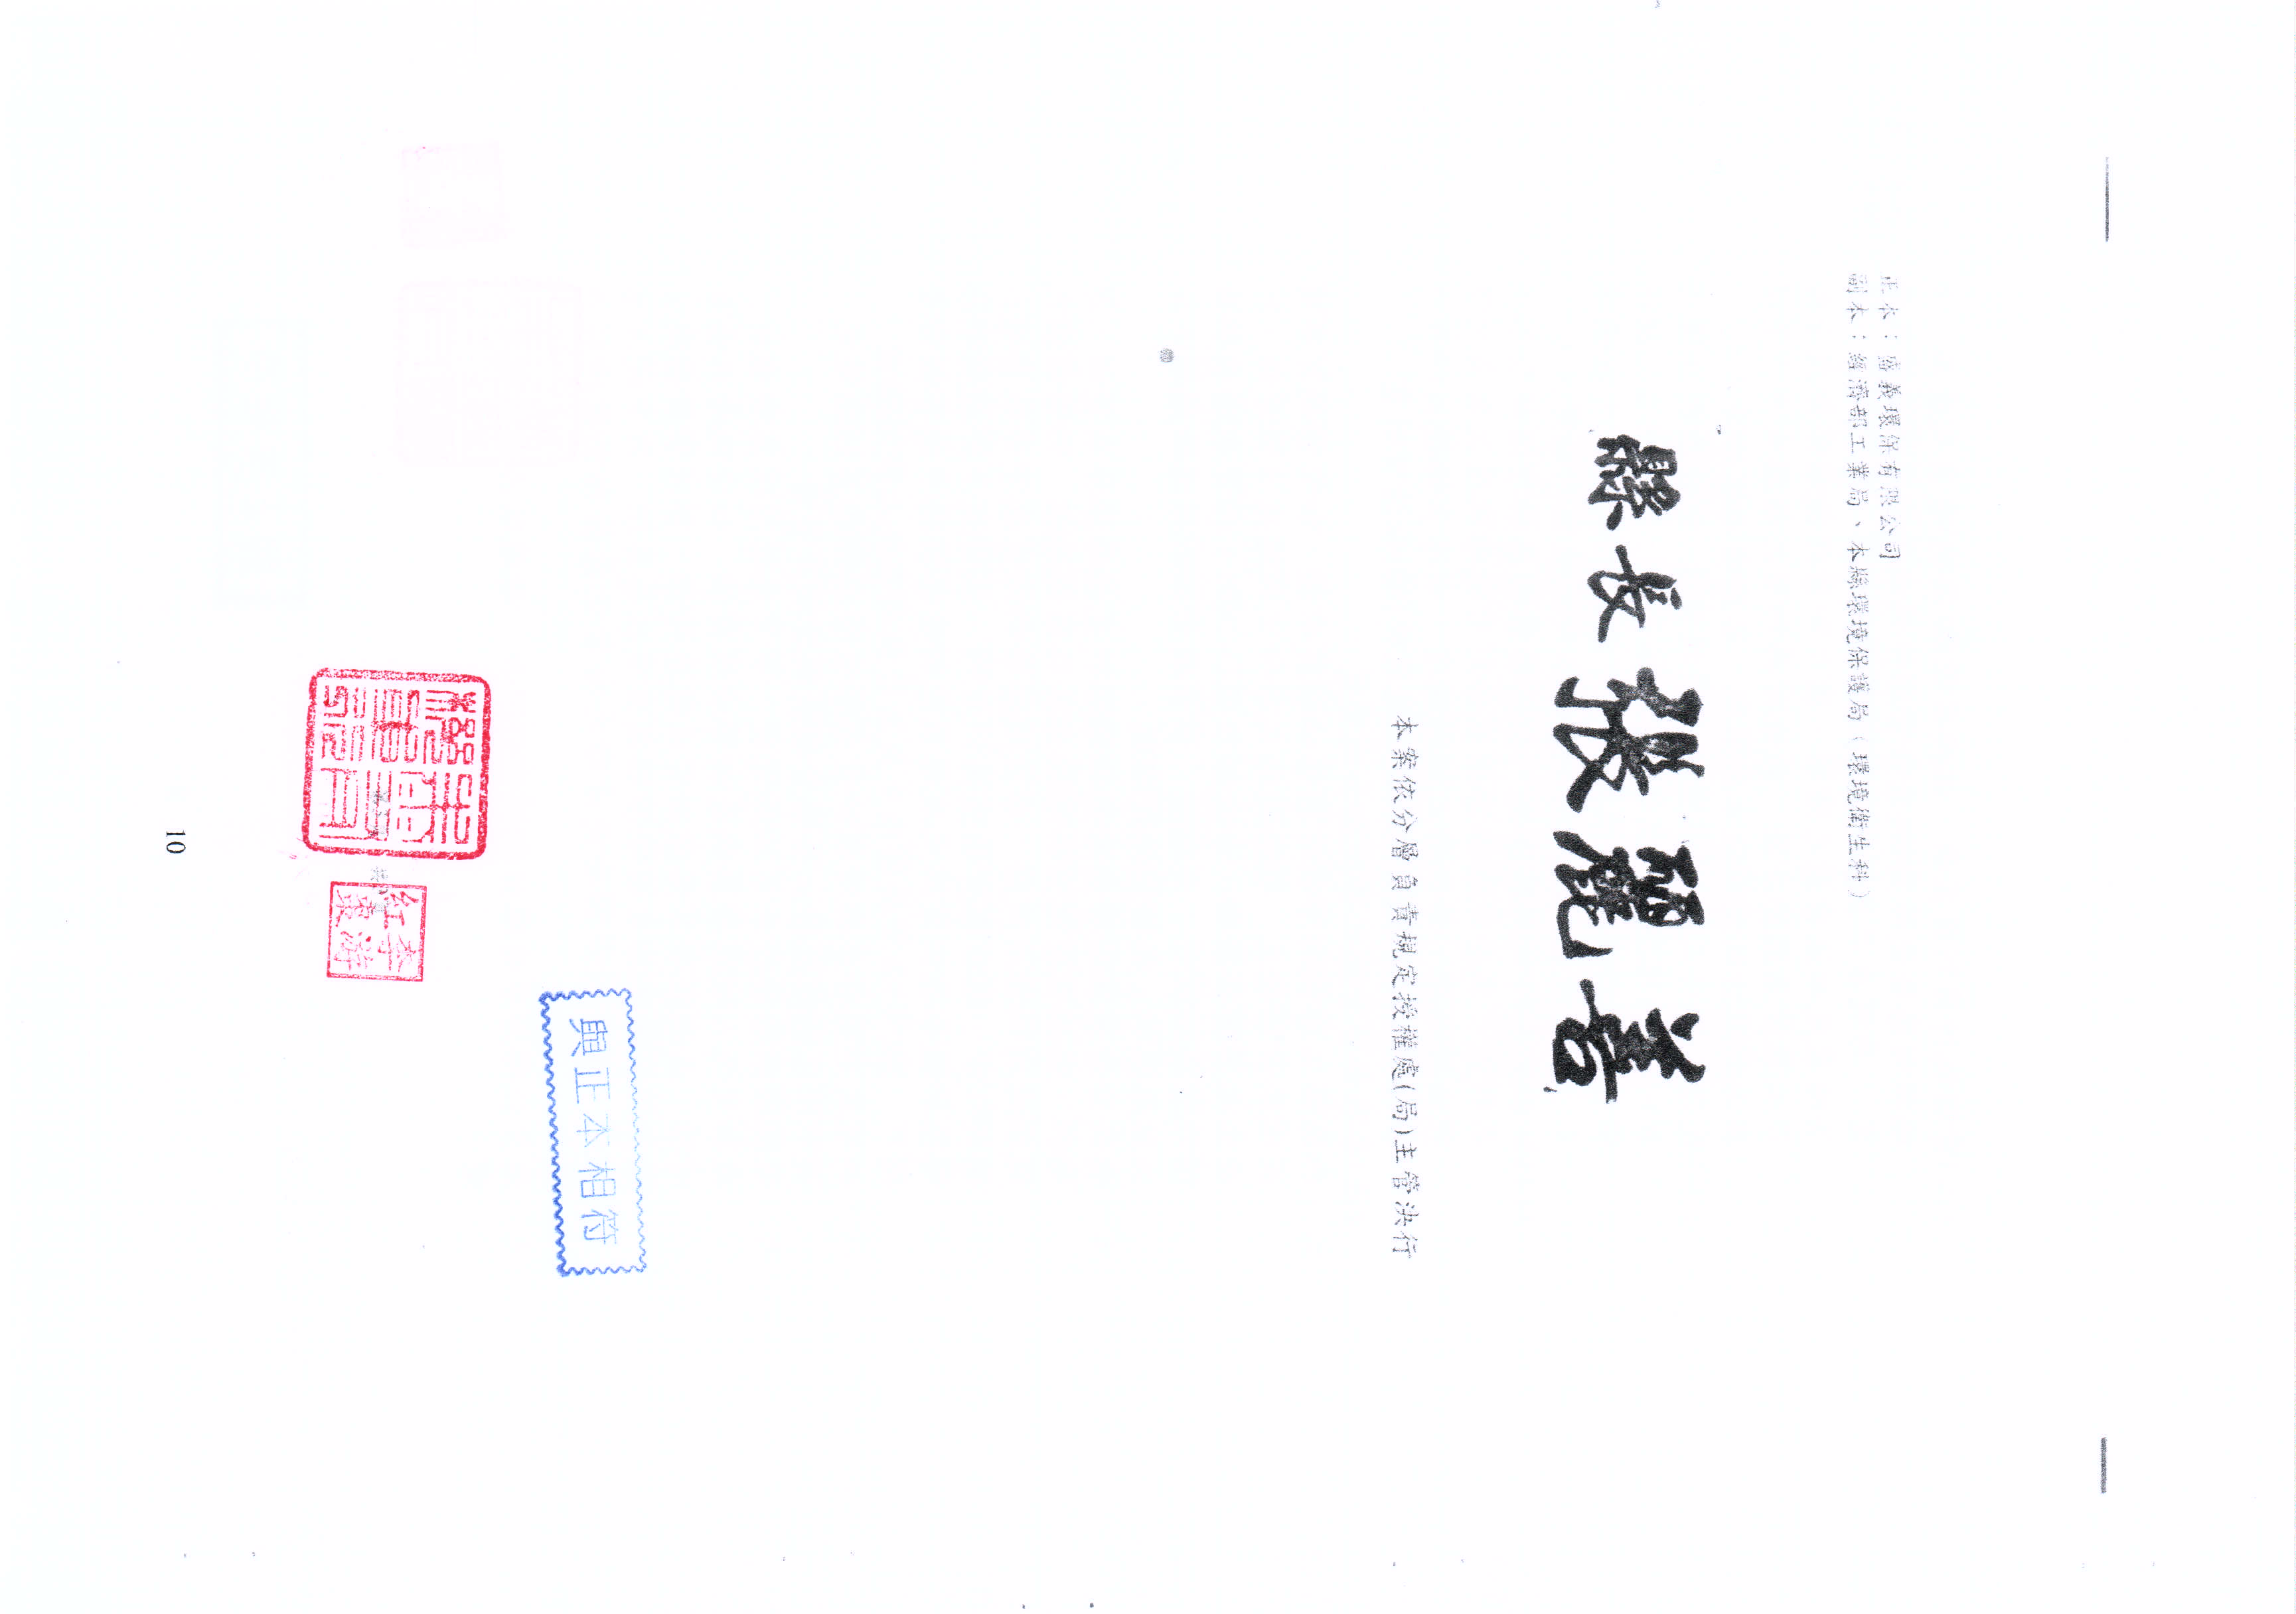 正本：盛義環保有限公司
副本：經濟部工業局、本縣環境保護局（環境衛生科）
縣長張麗善
本案依分層負責規定授權處(局)主管決行
與正本相符
10